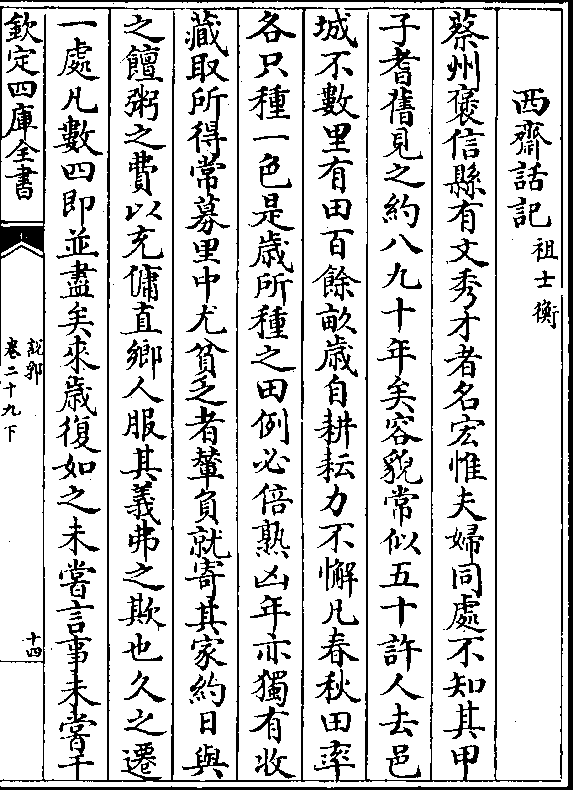 西齋話記祖士衡
蔡州褒信縣有文秀才者名宏惟夫婦同處不知其甲
子耆舊見之約八九十年矣容貌常似五十許人去邑
城不數里有田百餘畝歲自耕耘力不懈凡春秋田率
各只種一色是歲所種之田例必倍熟凶年亦獨有收
藏取所得常募里中尤貧乏者輦負就寄其家約日與
之饘粥之費以充傭直鄉人服其義弗之欺也久之遷
一處凡數四即並盡矣來歲復如之未嘗言事未嘗干
欽定四庫全書
說郛
卷二十九下
十四